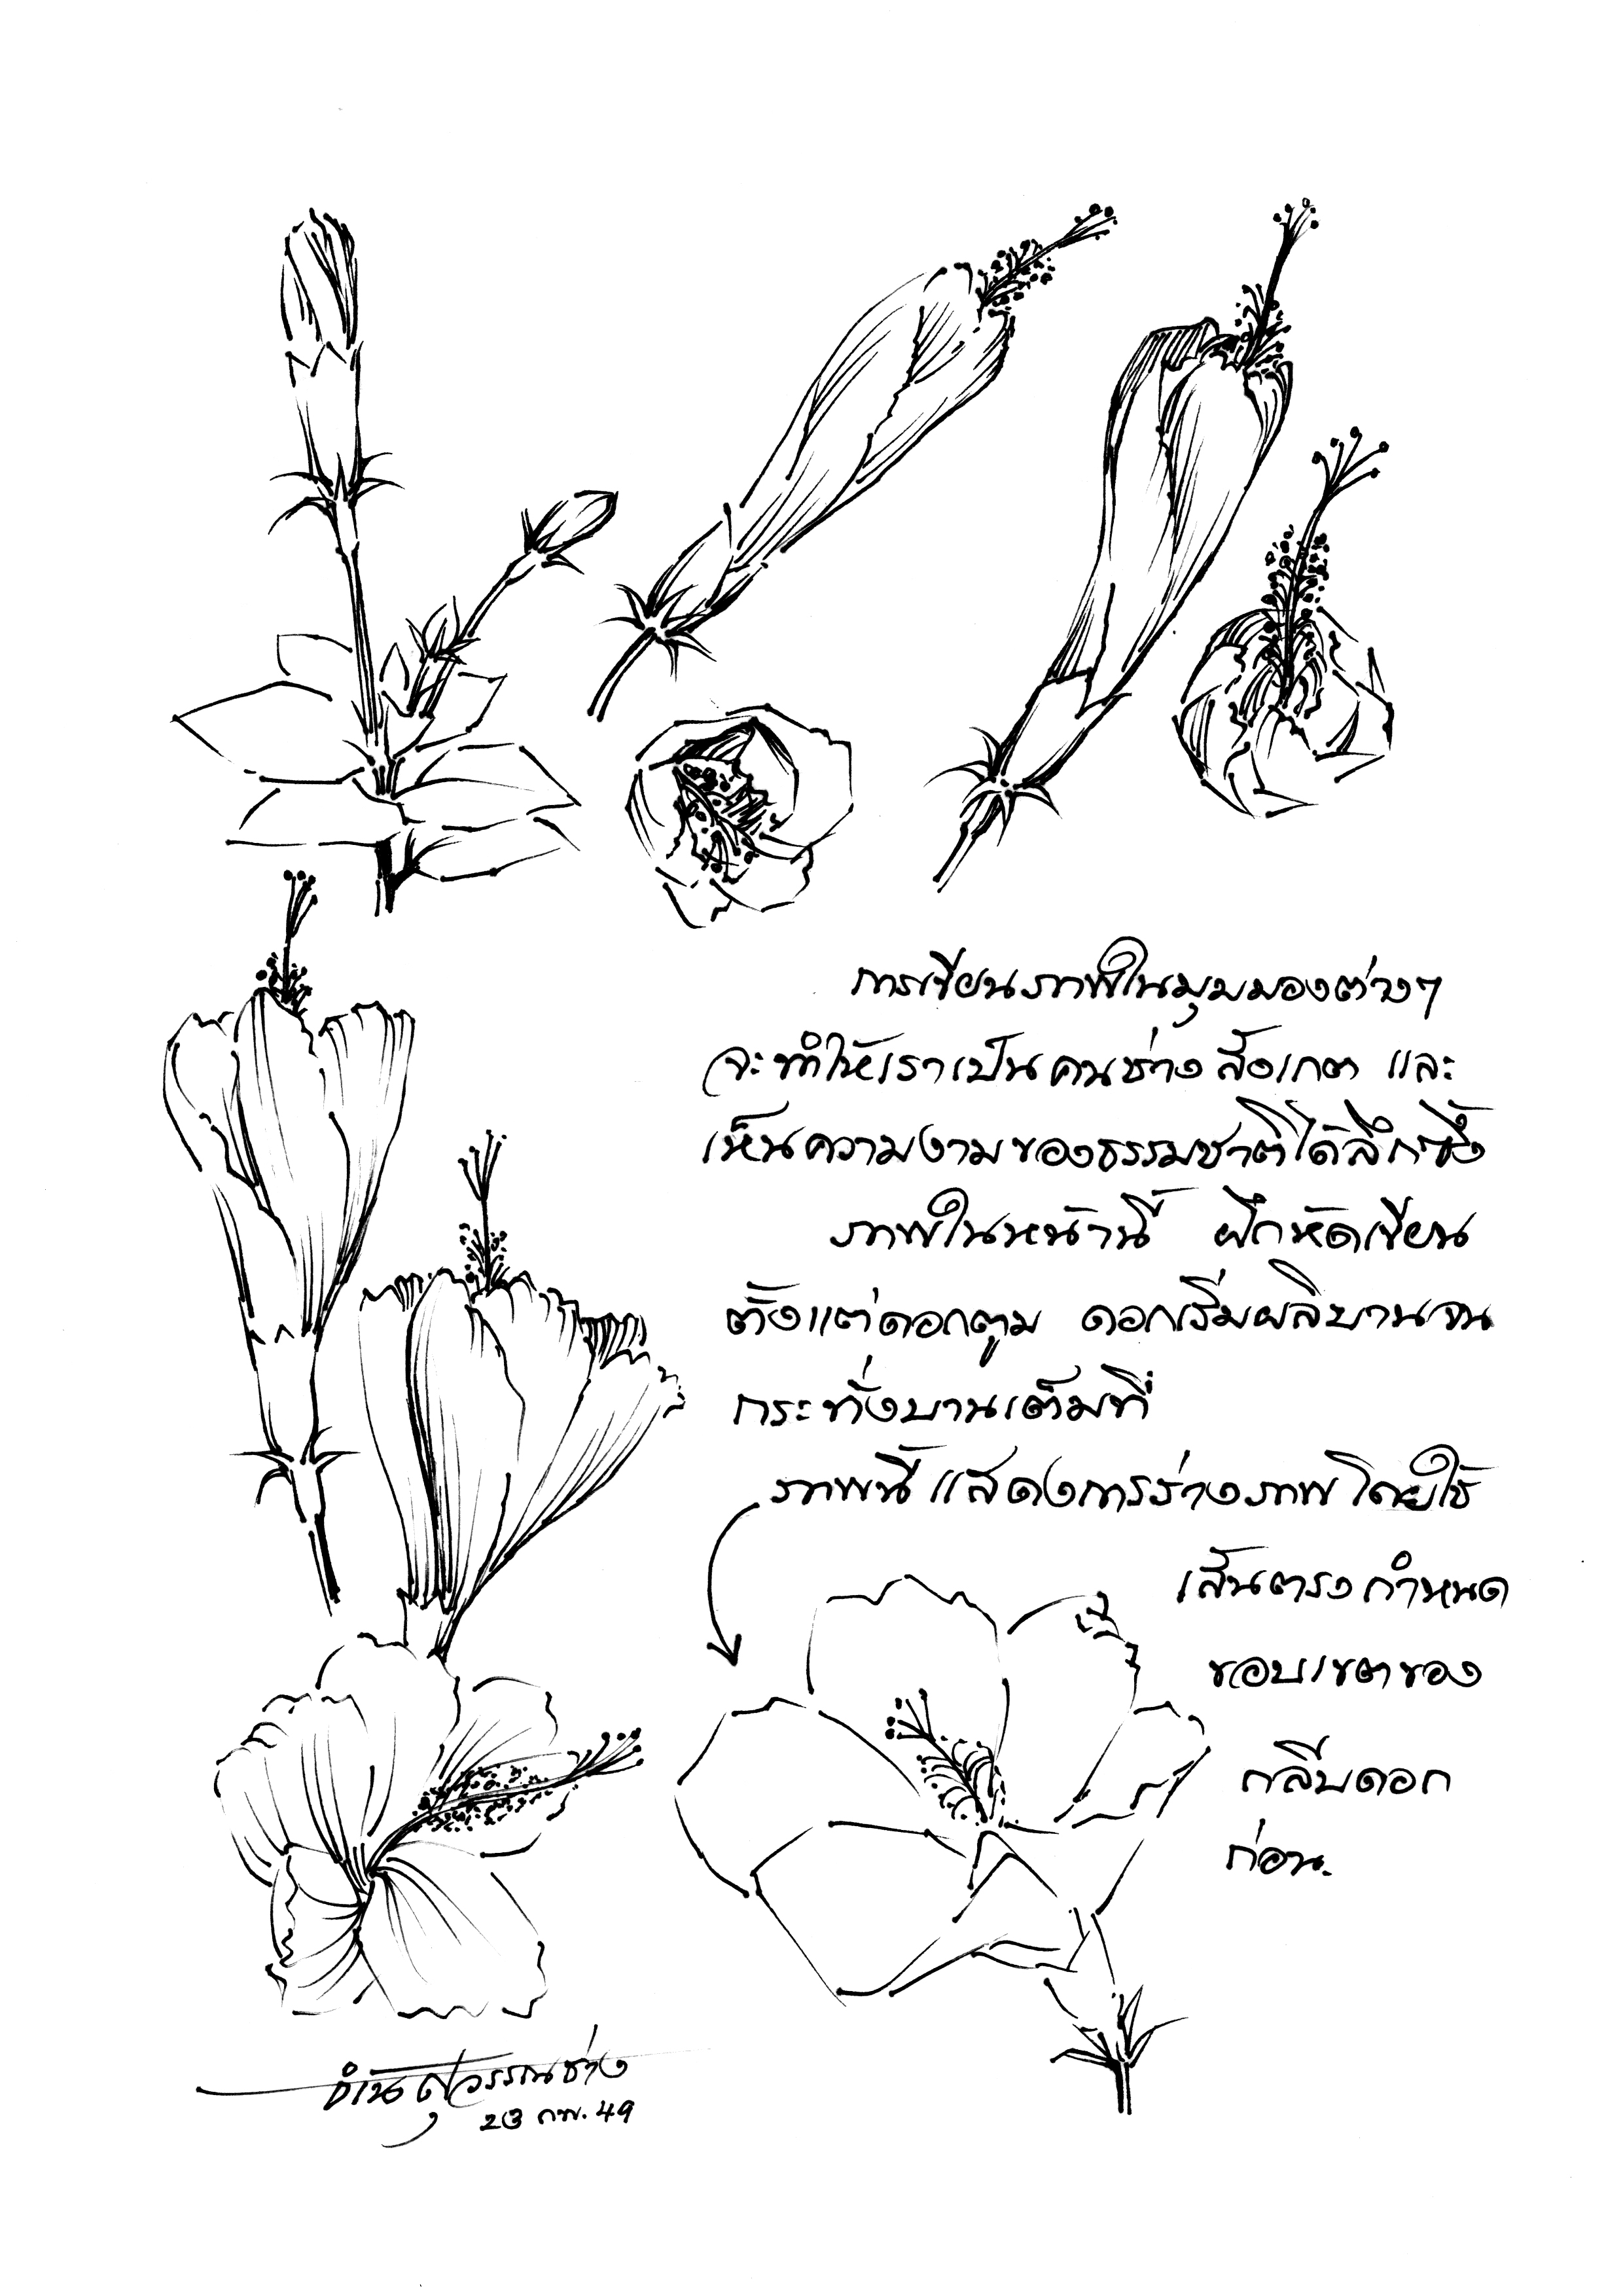 การเขียนภาพในมุมมองต่างๆ
จะทำให้เราเป็นคนช่างสังเกต และ
เห็นความงามของธรรมชาติได้ลึกซึ้ง
ภาพในหน้านี้ ฝึกหัดเขียน
ตั้งแต่ดอกตูม ดอกเริ่มผลิบานจน
กระทั่งบานเต็มที่
ภาพนี้แสดงการร่างภาพโดยใช้
เส้นตรงกำหนด
ขอบเขตของ
กลีบดอก
ก่อน.
สุวรรณช่าง
23 กพ. 49